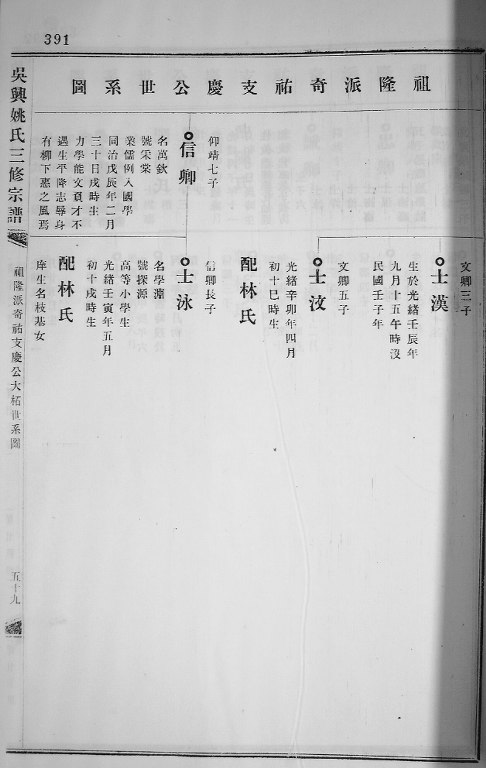 391
祖隆派奇祐支慶公世系圖
文卿三子
士漢
生於光緒壬辰年
九月十五午時沒
民國壬子年
士汶
文卿五子
光緒辛卯年四月
初十巳時生
配林氏
仰靖七子
信卿
名萬欽
號采棠
業儒例入國學
同治戊辰年二月
三十日戌時生
力學能文真才不
遇生平降志辱身
有柳下惠之風焉
信卿長子
士泳
名學淵
號探源
高等小學生
光緒壬寅年五月
初十戌時生
配林氏
庠生名枝基女
吳興姚氏三修宗譜
祖隆派奇祐支慶公大柘世系圖
五十九